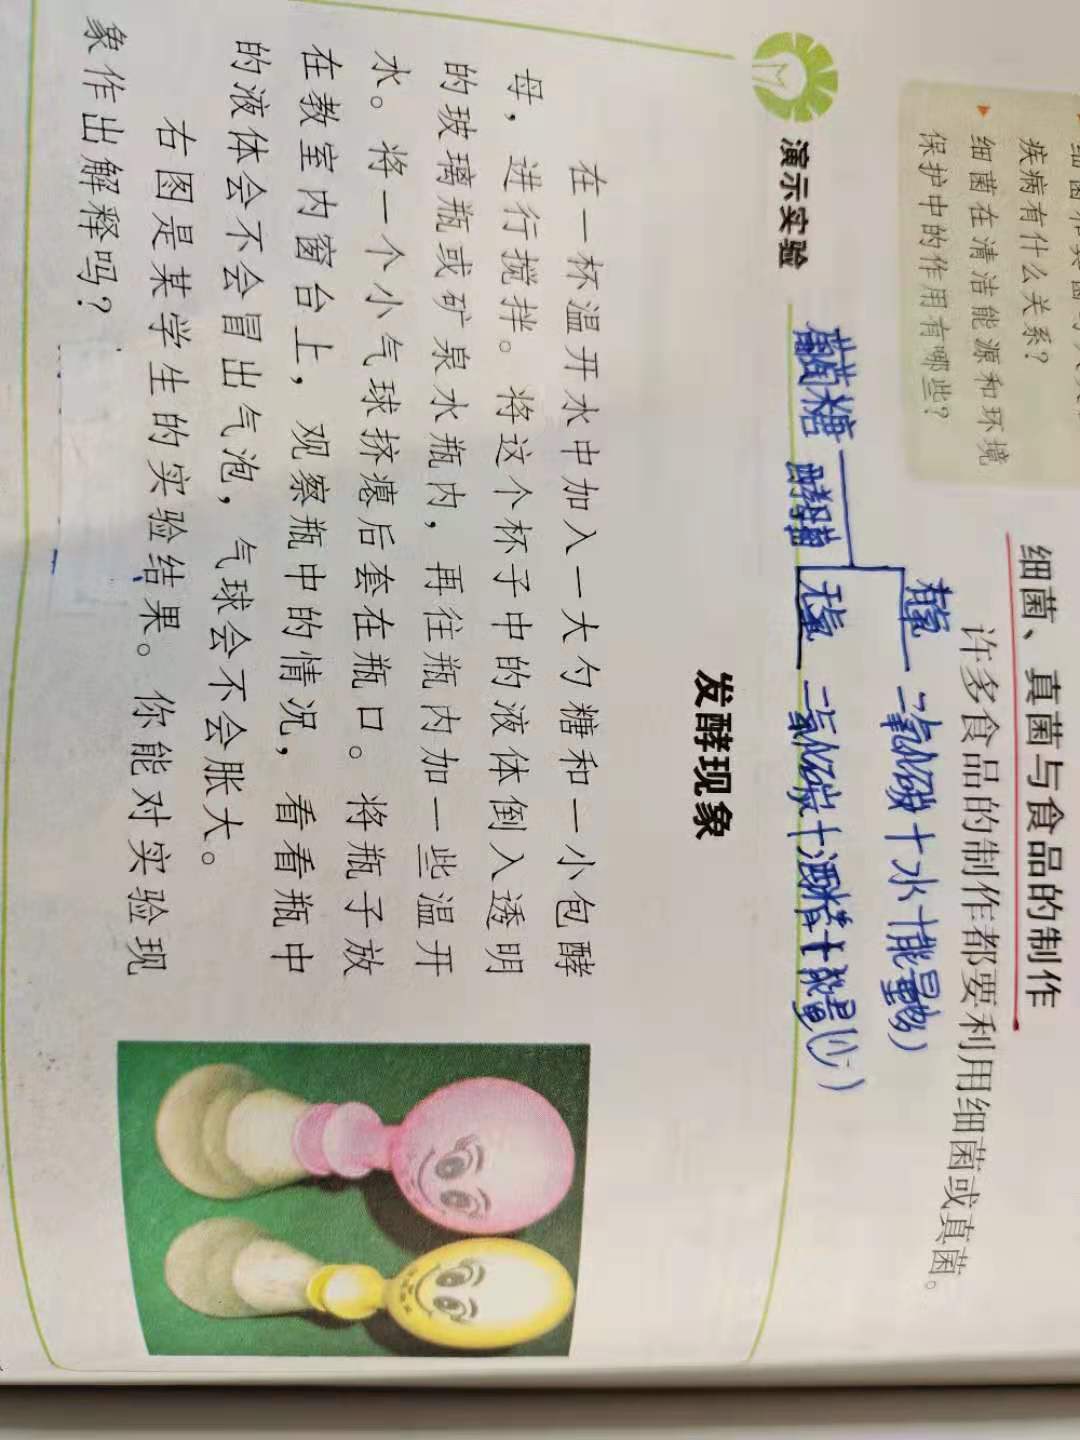 疾病有什么关系？
细菌在清洁能源和环境
保护中的作用有哪些？
细菌、真菌与食品的制作
许多食品的制作都要利用细菌或真菌。
有氧 二氧化碳+水+能量(多)
葡萄糖 酵母菌
无氧 二氧化碳+酒精+能量(少)
演示实验
发酵现象
在一杯温开水中加入一大勺糖和一小包酵
母，进行搅拌。将这个杯子中的液体倒入透明
的玻璃瓶或矿泉水瓶内，再往瓶内加一些温开
水。将一个小气球挤瘪后套在瓶口。将瓶子放
在教室内窗台上，观察瓶中的情况，看看瓶中
的液体会不会冒出气泡，气球会不会胀大。
右图是某学生的实验结果。你能对实验现
象作出解释吗？